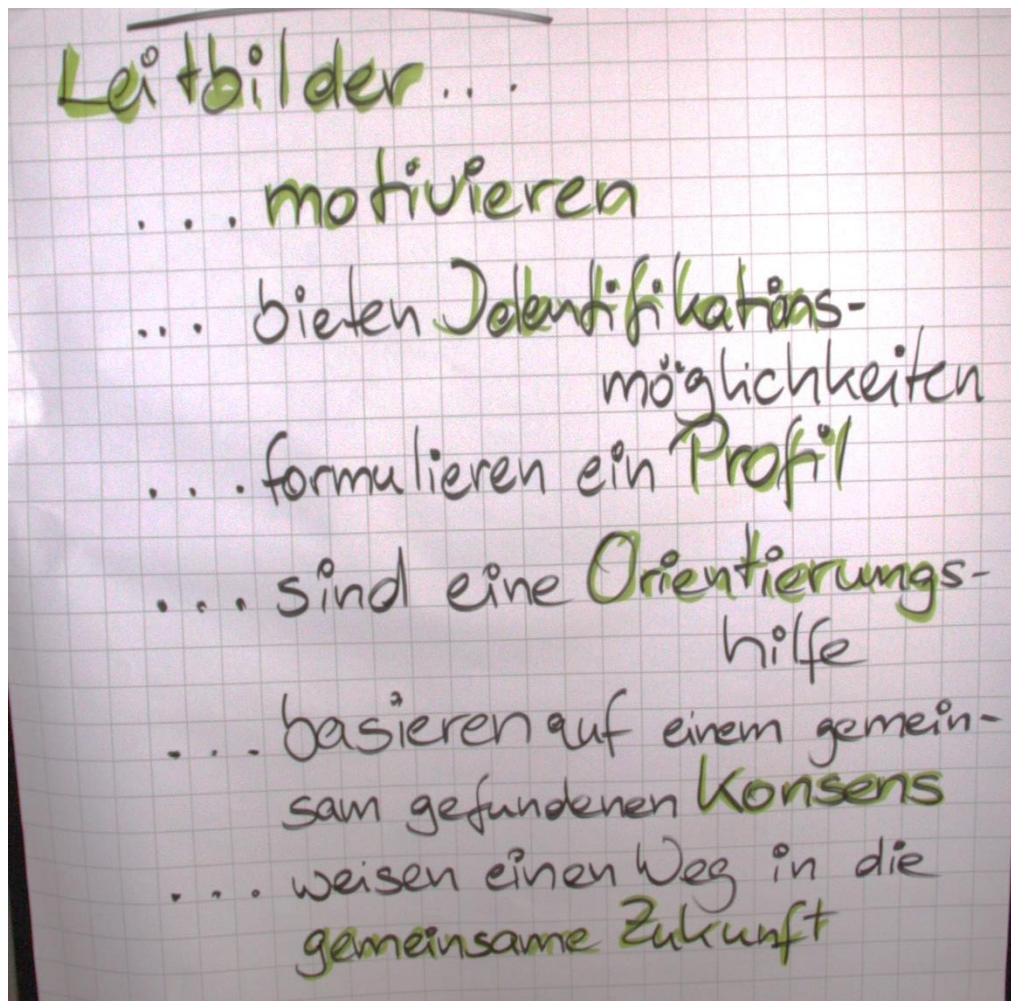 Leitbilder...
... motivieren
... bieten Identifikations-
möglichkeiten
... formulieren ein Profil
... sind eine Orientierungs-
hilfe
... basieren auf einem gemein-
sam gefundenen Konsens
.... weisen einen Weg in die
gemeinsame Zukunft